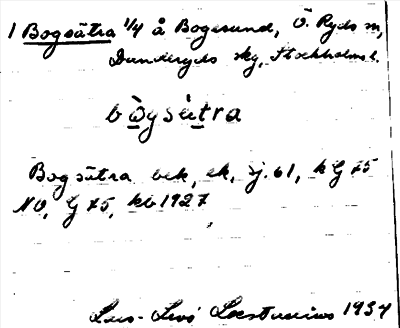 1 Bogsätra 1/4 å Bogesund, Ö. Ryds sn,
Danderyds skg, Stockholms l.
bògsä̀tra
Bogsätra bek, ek, j. 61, k G 75
NO, G 75, kb 1927
Lars-Levi Læstadius 1934